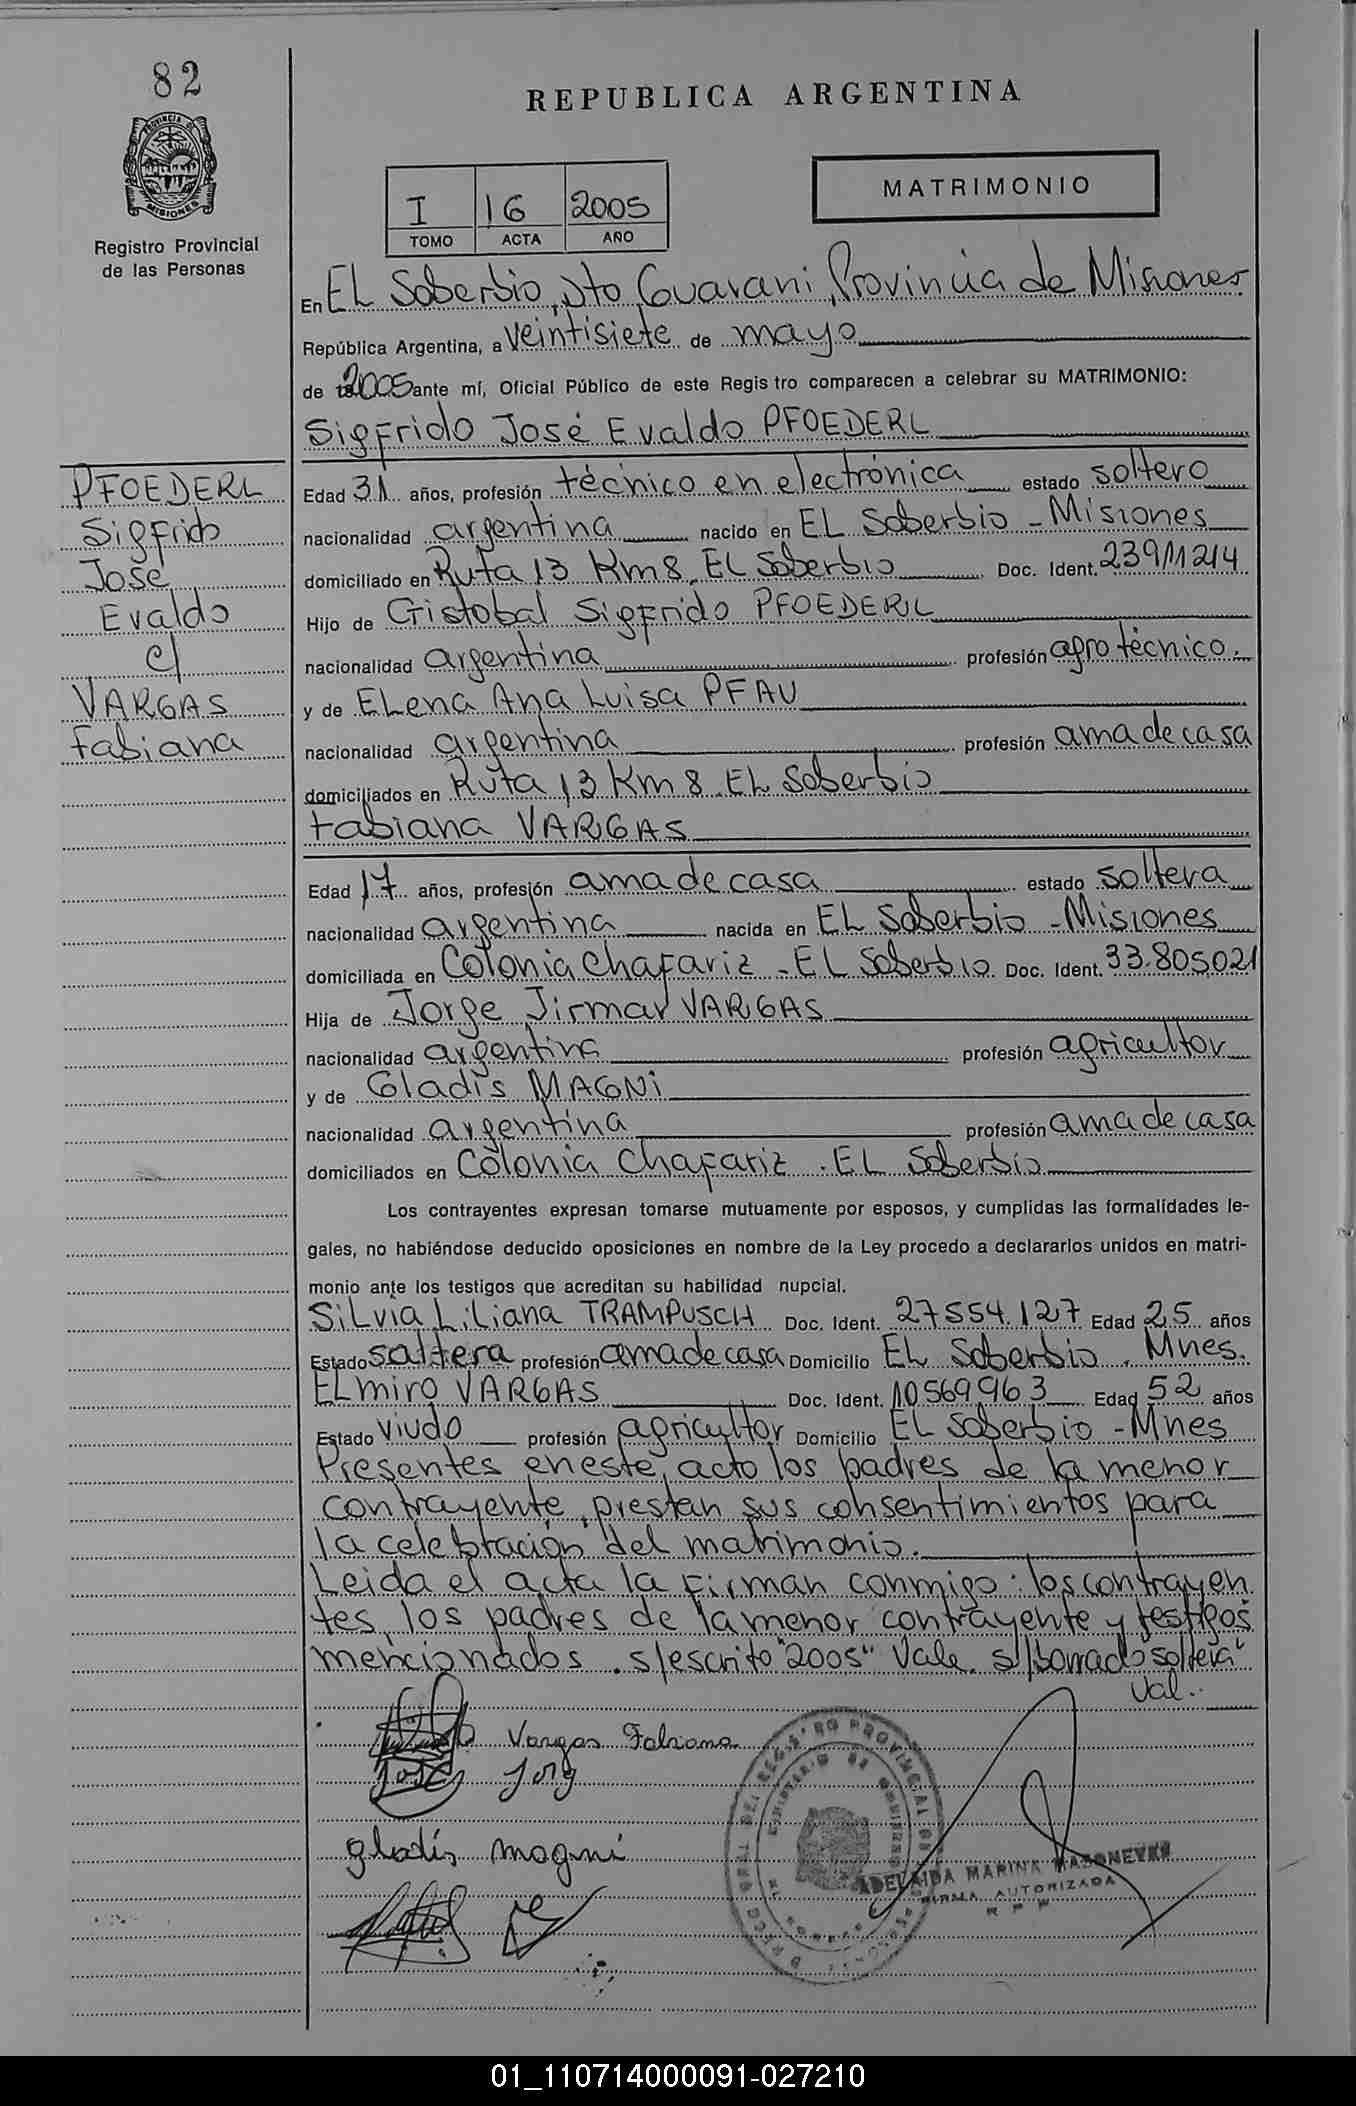 82
REPUBLICA ARGENTINA
PROVINCIA DE
MISIONES
Registro Provincial
de las Personas
I 16 2005
TOMO ACTA AÑO
MATRIMONIO
En EL Soberbio, Dto Guarani, Provincia de Misiones
República Argentina, a veintisiete de mayo
de 2005 ante mí, Oficial Público de este Regis tro comparecen a celebrar su MATRIMONIO:
Sigfrido José Evaldo PFOEDERL
PFOEDERL
Sigfrido
José
Evaldo
c/
VARGAS
Fabiana
Edad 31 años, profesión técnico en electrónica estado soltero
nacionalidad argentina nacido en EL Soberbio - Misiones
domiciliado en Ruta 13 Km 8. EL Soberbio Doc. Ident. 23911214
Hijo de Cristobal Sigfrido PFOEDERL
nacionalidad argentina profesión agrotécnico.
y de ELena Ana Luisa PFAU
nacionalidad argentina profesión ama de casa
domiciliados en Ruta 13 Km 8. EL Soberbio
Fabiana VARGAS
Edad 17 años, profesión ama de casa estado soltera
nacionalidad argentina nacida en EL Soberbio - Misiones
domiciliada en Colonia Chafariz - EL Soberbio Doc. Ident. 33.805.021
Hija de Jorge Jirmar VARGAS
nacionalidad argentina profesión agricultor
y de Gladis MAGNi
nacionalidad argentina profesión ama de casa
domiciliados en Colonia Chafariz . EL Soberbio
Los contrayentes expresan tomarse mutuamente por esposos, y cumplidas las formalidades le-
gales, no habiéndose deducido oposiciones en nombre de la Ley procedo a declararlos unidos en matri-
monio ante los testigos que acreditan su habilidad nupcial.
SiLvia LiLiana TRAMPUSCH Doc. Ident. 27554.127 Edad 25 años
Estado soltera profesión ama de casa Domicilio EL Soberbio . Mnes.
ELmiro VARGAS Doc. Ident. 10569963 Edad 52 años
Estado viudo profesión agricultor Domicilio EL Soberbio - Mnes
Presentes en este acto los padres de la menor
contrayente, prestan sus consentimientos para
la celebración del matrimonio.
Leida el acta la firman conmigo: los contrayen
tes, los padres de la menor contrayente y testigos
mencionados . s/escrito "2005" Vale. s/borrado "soltera"
Val..
Vargas Fabiana
José Jorg
gladis magni
ADELAIDA MARINA
FIRMA AUTORIZADA
01_110714000091-027210